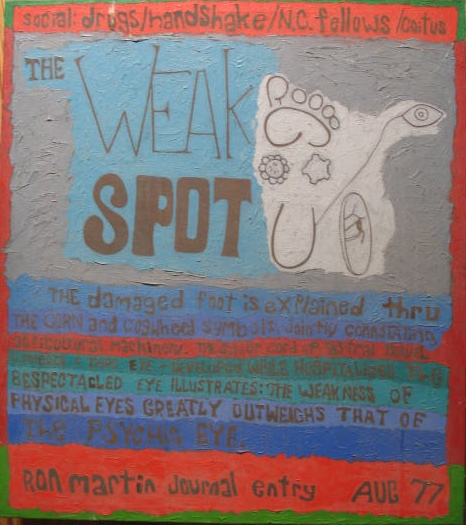 social: drugs/handshake/N.C. fellows/Coitus
THE WEAK
SPOT
THE damaged foot is explained thru
THE CORN and cogwheel symbols. Jointly connotating
agricultural machinery. The silver cord of astral travel
EYE DEVELOPED WHILE HOSPITALIZED. THE
BESPECTACLED EYE ILLUSTRATES: THE WEAKNESS OF
PHYSICAL EYES GREATLY OUTWEIGHS THAT OF
THE PSYCHIC EYE.
RON MARTIN JOURNAL ENTRY AUG 77